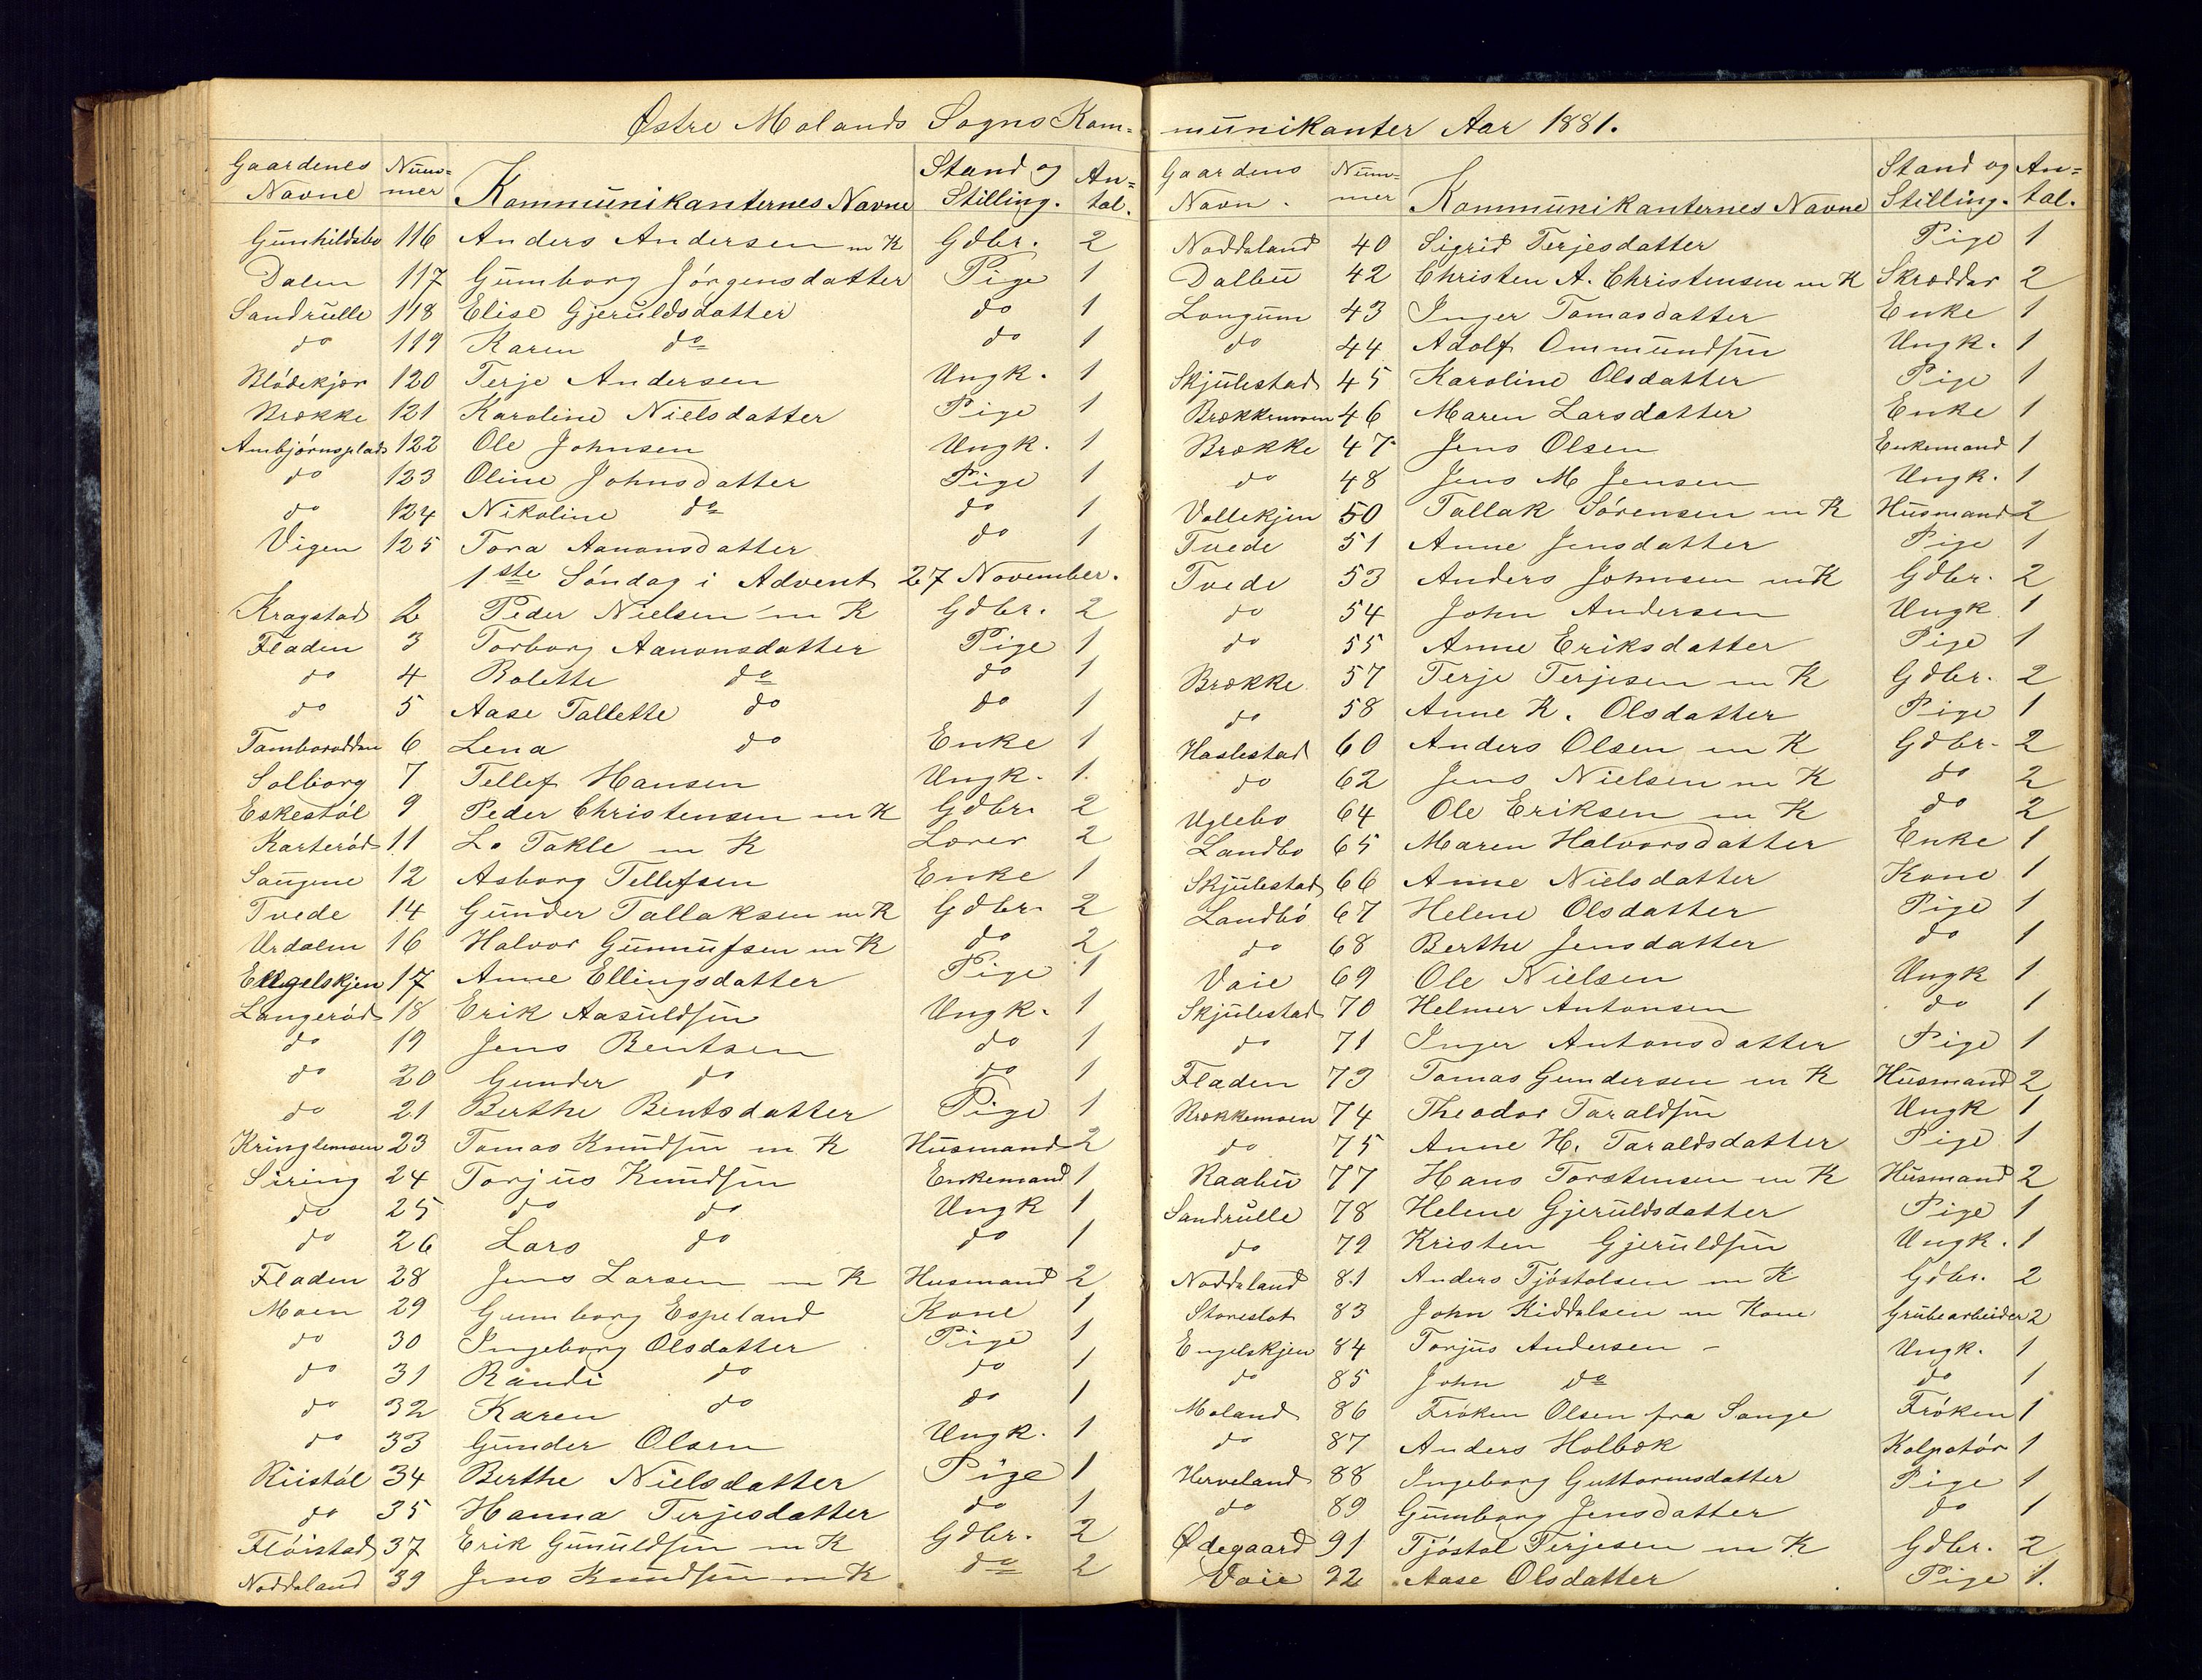 Østre Molands Sogns Kom=
Gaardenes Navne Num=mer Kommunikanternes Navne Stand og Stilling. An=tal.
Gunhildsbo 116 Anders Andersen m K Gdbr. 2
Dalen 117 Gumborg Jörgensdatter Pige 1
Sandrulle 118 Elise Gjeruldsdatter do 1
do 119 Karen do do 1
Blödekjær 120 Terje Andersen Ungk. 1
Brække 121 Karoline Nielsdatter Pige 1
Ambjörnsplads 122 Ole Johnsen Ungk. 1
do 123 Oline Johnsdatter Pige 1
do 124 Nikoline do do 1
Vigen 125 Tora Aanonsdatter do 1
1ste Söndag i Advent 27 November.
Kragstad 2 Peder Nielsen m K Gdbr. 2
Fladen 3 Torborg Aanonsdatter Pige 1
do 4 Bolette do do 1
do 5 Aase Tallette do do 1
6 Lena do Enke 1
Solborg 7 Tellef Hansen Ungk. 1.
Eskestöl 9 Peder Christensen m K Gdbr. 2
Karteröd 11 L. Takle m K Lærer 2
Saugene 12 Asborg Tellefsen Enke 1
Tvede 14 Gunder Tallaksen m K Gdbr. 2
Urdalen 16 Halvor Gunnufsen m K do 2
17 Anne Ellingsdatter Pige 1
Langeröd 18 Erik Aasuldsen Ungk. 1
do 19 Jens Bentsen do 1
do 20 Gunder do do 1
do 21 Berthe Bentsdatter Pige 1
Kringlemoen 23 Tomas Knudsen m K Husmand 2
Siring 24 Torjus Knudsen Enkemand 1
do 25 do do Ungk 1
do 26 Lars do do 1
Fladen 28 Jens Larsen m K Husmand 2
Moen 29 Gumborg Espeland Kone 1
do 30 Ingeborg Olsdatter Pige 1
do 31 Randi do do 1
do 32 Karen do do 1
do 33 Gunder Olsen Ungk. 1
Riistöl 34 Berthe Nielsdatter Pige 1
do 35 Hanna Terjesdatter do 1
Flöistad 37 Erik Gunuldsen m K Gdbr. 2
Noddeland 39 Jens Knudsen m K do 2
munikanter Aar 1881.
Gaardens Navn. Num=mer Kommunikanternes Navne Stand og Stilling. An=tal.
Noddeland 40 Sigrid Terjesdatter Pige 1
Dalbu 42 Christen A. Christensen m K Skrædder 2
Longum 43 Inger Tomasdatter Enke 1
do 44 Adolf Ommundsen Ungk. 1
Skjulestad 45 Karoline Olsdatter Pige 1
Brækkemoen 46 Maren Larsdatter Enke 1
Brække 47 Jens Olsen Enkemand 1
do 48 Jens M Jensen Ungk. 1
Vollekjen 50 Tallak Sörensen m K Husmand 2
Tvede 51 Anne Jensdatter Pige 1
Tvede 53 Anders Johnsen m K Gdbr. 2
do 54 John Andersen Ungk 1
do 55 Anne Eriksdatter Pige 1
Brække 57 Terje Terjesen m K Gdbr. 2
do 58 Anne K. Olsdatter Pige 1
Haslestad 60 Anders Olsen m K Gdbr. 2
do 62 Jens Nielsen m K do 2
Uglebo 64 Ole Eriksen m K do 2
Landbo 65 Maren Halvorsdatter Enke 1
Skjulestad 66 Anne Nielsdatter Kone 1
Landbö 67 Helene Olsdatter Pige 1
do 68 Berthe Jensdatter do 1
Vaie 69 Ole Nielsen Ungk 1
Skjulestad 70 Helmer Antonsen do 1
do 71 Inger Antonsdatter Pige 1
Fladen 73 Tomas Gundersen m K Husmand 2
Brækkemoen 74 Theodor Taraldsen Ungk 1
do 75 Anne H. Taraldsdatter Pige 1
Raabu 77 Hans Torstensen m K Husmand 2
Sandrulle 78 Helene Gjeruldsdatter Pige 1
do 79 Kristen Gjeruldsen Ungk. 1
Noddeland 81 Anders Tjöstolsen m K Gdbr. 2
Storeslot 83 John Kiddelsen m Kone Grubearbeider 2
Engelskjen 84 Torjus Andersen - Ungk. 1
do 85 John do do 1
Moland 86 Fröken Olsen fra Sange Fröken 1
do 87 Anders Holbæk Kolpotör 1
Herveland 88 Ingeborg Guttormsdatter Pige 1
do 89 Gumborg Jensdatter do 1
Ødegaard 91 Tjöstol Terjesen m K Gdbr. 2
Vaie 92 Aase Olsdatter Pige 1.